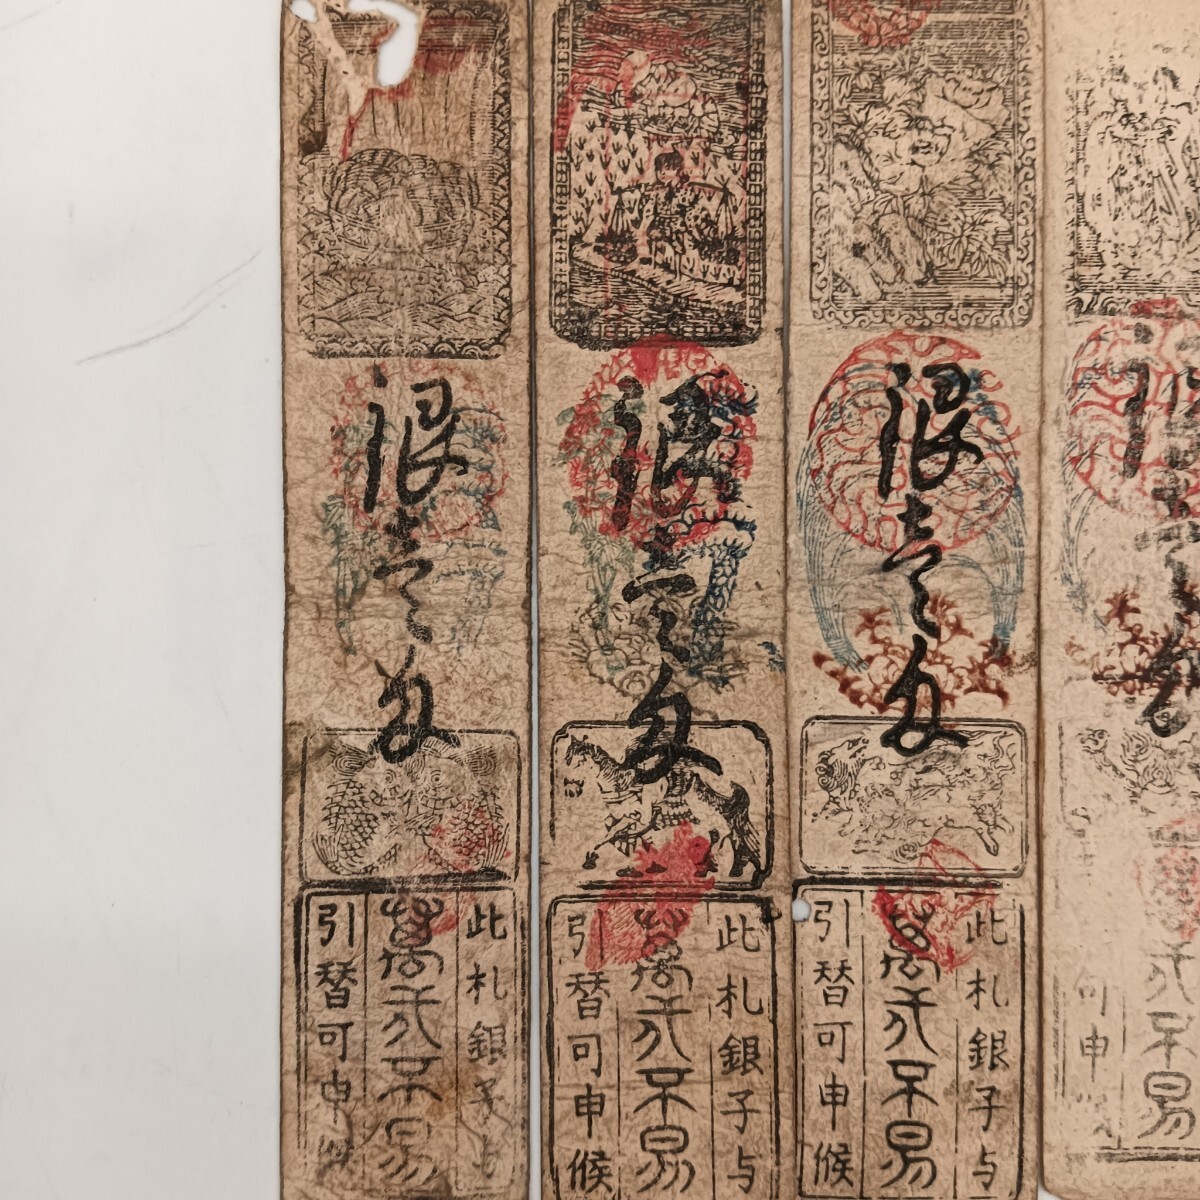 銀壱匁
此札銀子与
萬代不易
引替可申候
銀壱匁
此札銀子与
萬代不易
引替可申候
銀壱匁
此札銀子与
萬代不易
引替可申候
銀壱匁
代不易
可申